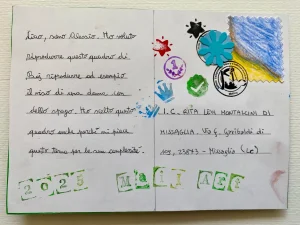 Ciao, sono Alessio. Ho voluto
riprodurre questo quadro di
riprodurre ad esempio
il viso di una donna con
dello spago. Ho scelto questo
quadro anche perché mi piace
questo tema per la sua complessità.
I.C. RITA LEVI MONTALCINI DI
MISSAGLIA, Via G. Garibaldi di
23873 - Missaglia (Lc)
2025 Mail Art